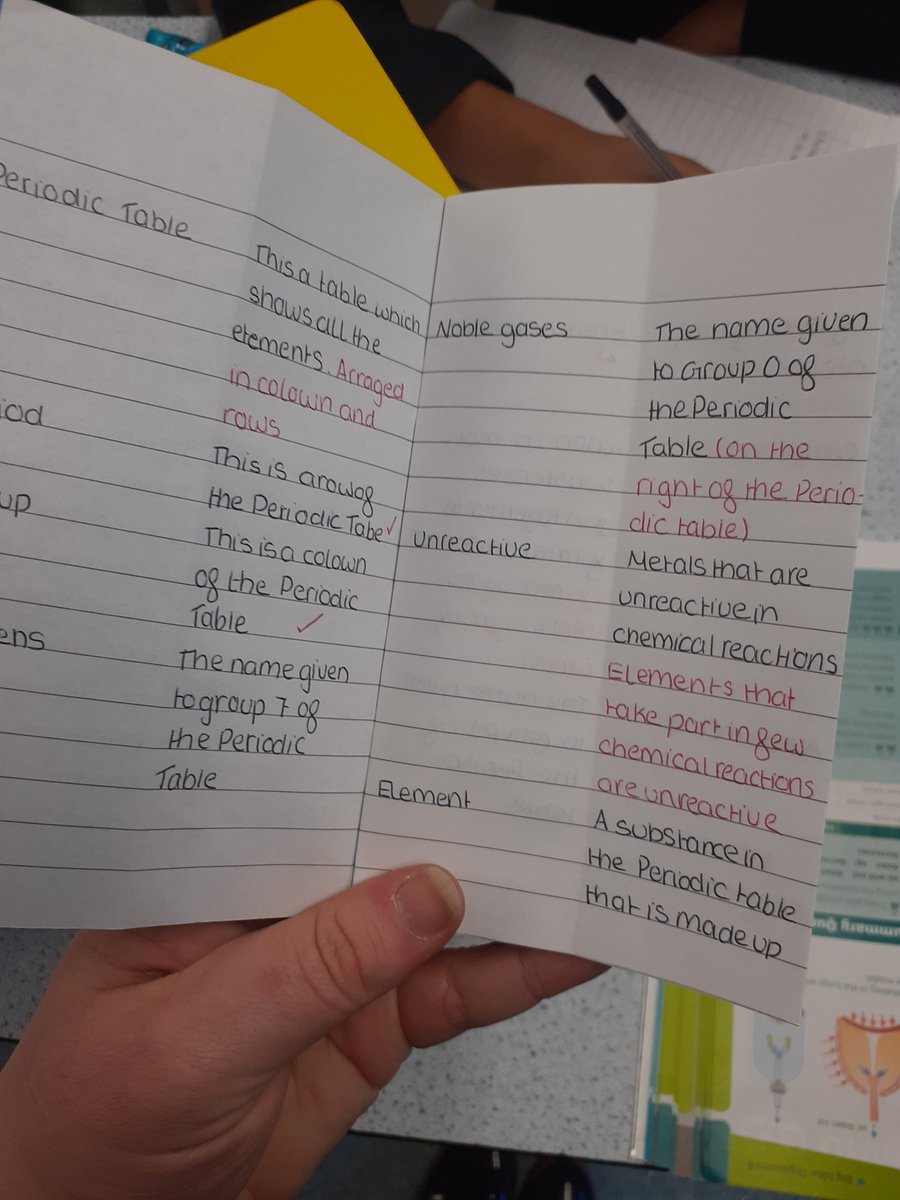 Periodic Table
This a table which
shows all the
elements. Arraged
in colown and
rows
iod
This is arowof
the Periodic Tabe ✓
up
This is a colown
of the Periodic
Table ✓
ens
The name given
to group 7 of
the Periodic
Table
Noble gases
The name given
to Group 0 of
the Periodic
Table (on the
right of the Perio-
dic table)
unreactive
Metals that are
unreactive in
chemical reactions
Elements that
take part in few
chemical reactions
are unreactive
Element
A substance in
the Periodic table
that is made up